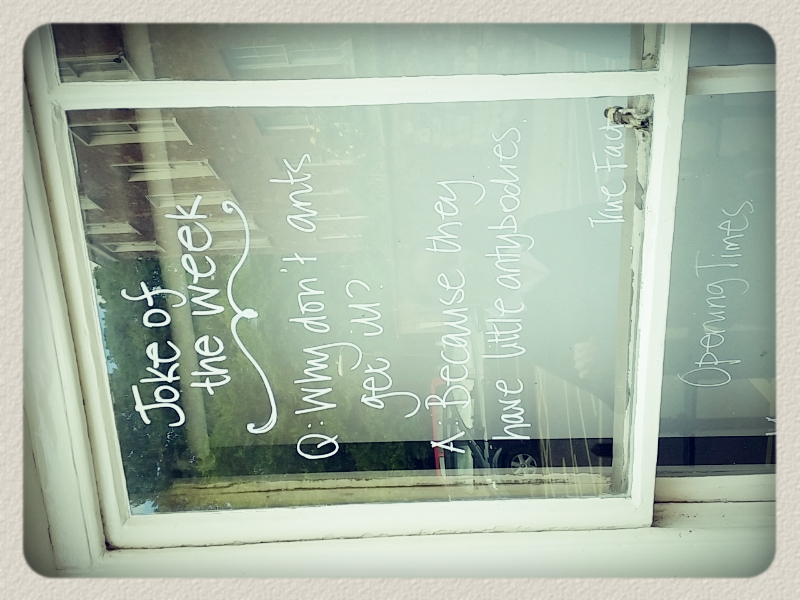 Joke of
the week
Q: Why don't ants
get ill?
A: Because they
have little antybodies.
True Fact
Opening Times.